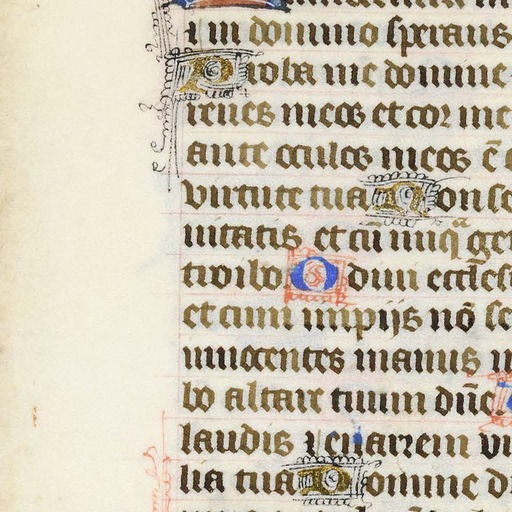 i in domino sperans
Proba me domine
renes meos et cor me
ante oculos meos ē
virtute tua Non se
nitatis et cū iniq̄ ge
troibo Odiui eccłes
et cum impijs nō se
innocentes manus
bo altare tuum dn̄e
laudis 7 enarrem
lia tua Domine d